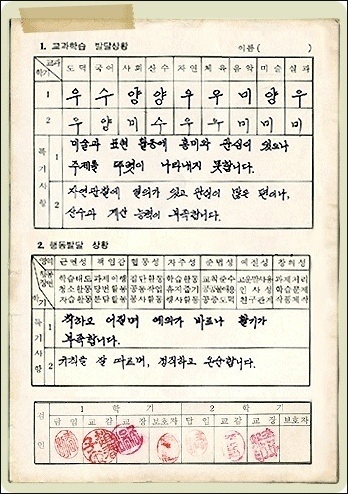 1. 교과학습 발달상황 이름( )
교과 도덕 국어 사회 산수 자연 체육 음악 미술 실과
학기
1 우 수 양 양 우 우 미 양 우
2 우 양 미 수 우 우 미 미 미
특기사항
1 미술과 표현 활동에 흥미와 관심이 있으나
주제를 뚜렷이 나타내지 못합니다.
2 자연관찰에 열의가 있고 관심이 많은 편이나,
산수과 계산 능력이 부족합니다.
2. 행동발달 상황
근면성 책임감 협동성 자주성 준법성 예진성 창의성
학기
특기사항
1 착하고 어질며 예의가 바르나 활기가
부족합니다.
2 규칙을 잘 따르며, 정직하고 온순합니다.
결인
1 학기 2 학기
담임 교감 교장 보호자 담인 교감 교장 보호자